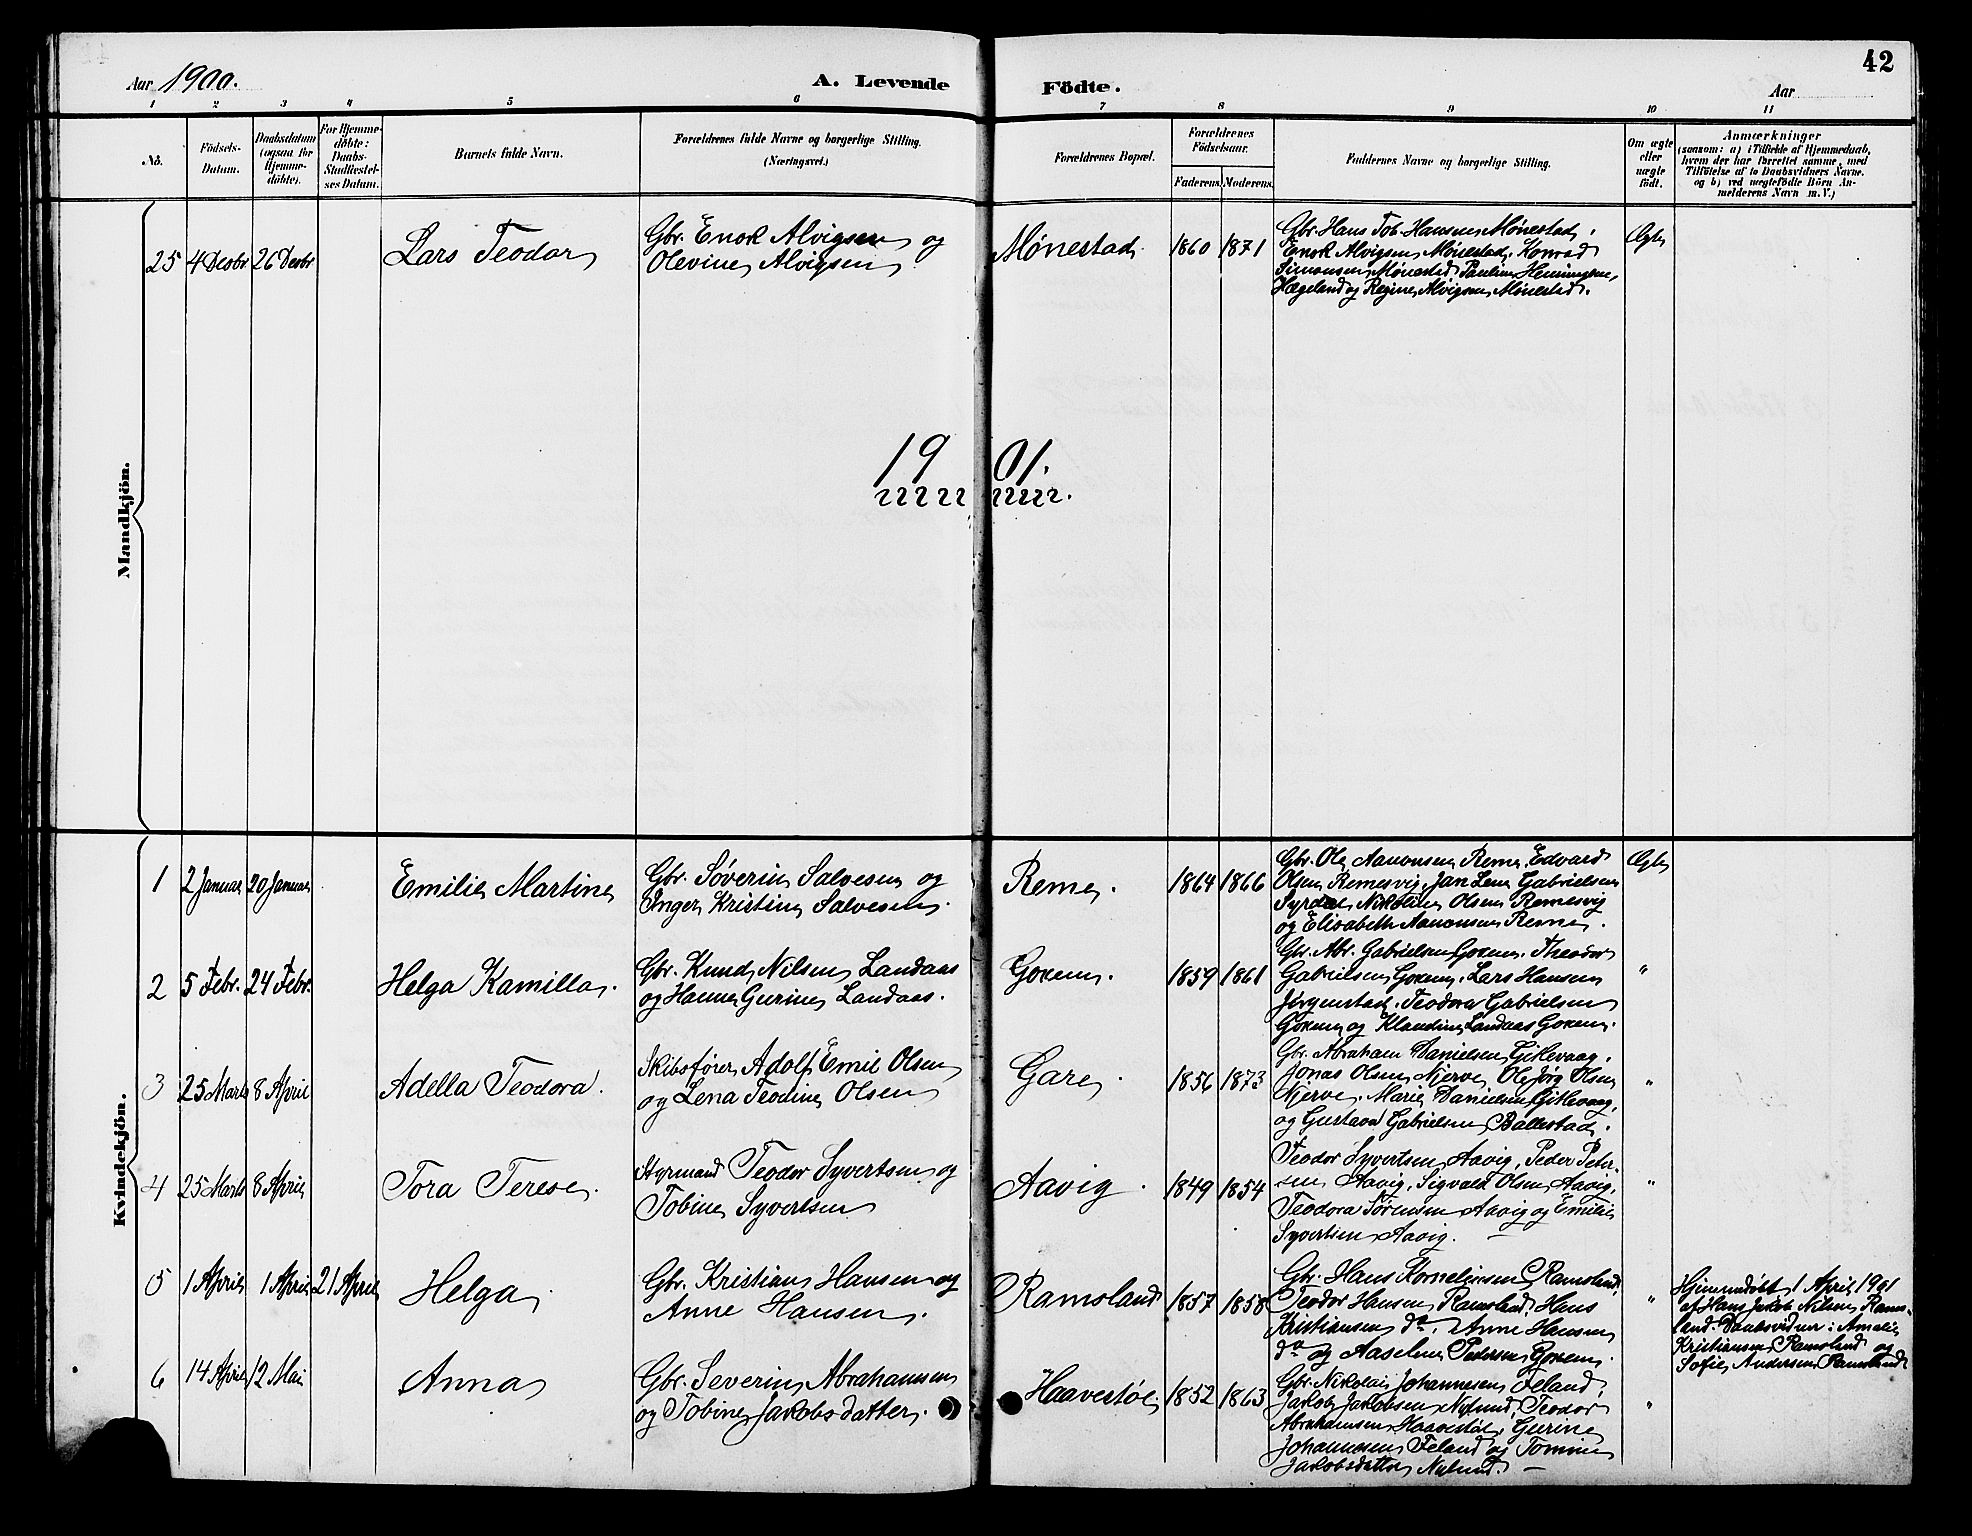 42
Aar 1900.
A. Levende Födte.
Aar
1 2 3 4 5 6 7 8 9 10 11
No.
Födsels-
Datum.
Daabsdatum
(ogsaa for
Hjemme-
döbte).
For Hjemme-
döbte:
Daabs-
Stadfæstel-
ses Datum.
Barnets fulde Navn.
Forældrenes fulde Navne og borgerlige Stilling.
(Næringsvei.)
Forældrenes Bopæl.
Forældrenes
Födselsaar.
Faderens. Moderens.
Faddernes Navne og borgerlige Stilling.
Om ægte
eller
uægte
födt.
Anmærkninger
(saasom: a) i Tilfælde af Hjemmedaab,
hvem der har forrettet samme, med
Tilföielse af to Daabsvidners Navne.
og b) ved uægtefödte Börn An-
melderens Navn m. V.)
Mandkjön.
25 4 Desbr 26 Desbr
Lars Teodor
Gbr. Enok Alvigsen og
Olevine Alvigsen
Mønestad
1860 1871
Gbr. Hans Tob. Hansen Mønestad,
Enok Alvigsen Mønestad, Konrad
Simonsen Mønestad Pauline Henningsen,
Hægeland og Regine Alvigsen Mønestad.
Ægte
1901.
Kvindekjön.
1 2 Januar 20 Januar
Emilie Martine
Gbr. Søverin Salvesen og
Inger Kristine Salvesen.
Reme.
1864 1866
Gbr. Ole Aanonsen Reme, Edvard
Olsen Remesvig, Jan Lene Gabrielsen
Syrdal Nikoline Olsen Remesvig
og Elisabeth Aanonsen Reme.
Ægte
2 5 Febr. 24 Febr.
Helga Kamilla.
Gbr. Knud Nilsen Landaas
og Hanne Gurine Landaas.
Goksem.
1859 1861
Gbr. Abr. Gabrielsen Goksem, Theodor
Gabrielsen Goksem, Lars Hansen
Jørgenstad, Teodora Gabrielsen
Goksem og Klaudine Landaas Goksem.
"
3 25 Marts 8 April
Adella Teodora.
Skibsfører Adolf Emil Olsen
og Lena Teodine Olsen
Gare.
1856 1873
Gbr. Abraham Danielsen Gitlevaag,
Jonas Olsen Njerve, Ole Jørg Olsen
Njerve, Marie Danielsen Gitlevaag,
og Gustava Gabrielsen Ballestad.
"
4 25 Marts 8 April
Tora Terese.
Styrmand Teodor Syvertsen og
Tobine Syvertsen
Aavig.
1849 1854
Teodor Syvertsen Aavig, Peder Peter-
sen Aavig, Sigvald Olsen Aavig,
Teodora Sørensen Aavig og Emilie
Syvertsen Aavig.
"
5 1 April 1 April 21 April
Helga.
Gbr. Kristian Hansen og
Anne Hansen.
Ramsland
1857 1858
Gbr. Hans Korneliussen Ramsland,
Teodor Hansen Ramsland, Hans
Kristiansen do, Anne Hansen
do og Aaselene Pedersen Goksem.
"
Hjemmedøbt 1 April 1901
af Hans Jakob Nilsen Rams-
land. Daabsvidner: Amalie
Kristiansen Ramsland og
Sofie Andersen Ramsland
6 14 April 12 Mai
Anna
Gbr. Severin Abrahamsen
og Tobine Jakobsdatter.
Haavestøl.
1852 1863
Gbr. Nikolai Johannesen Feland,
Jakob Jakobsen Nølund, Teodor
Abrahamsen Haavestøl, Gurine
Johannesen Feland og Tomine
Jakobsdatter Nølund.
"